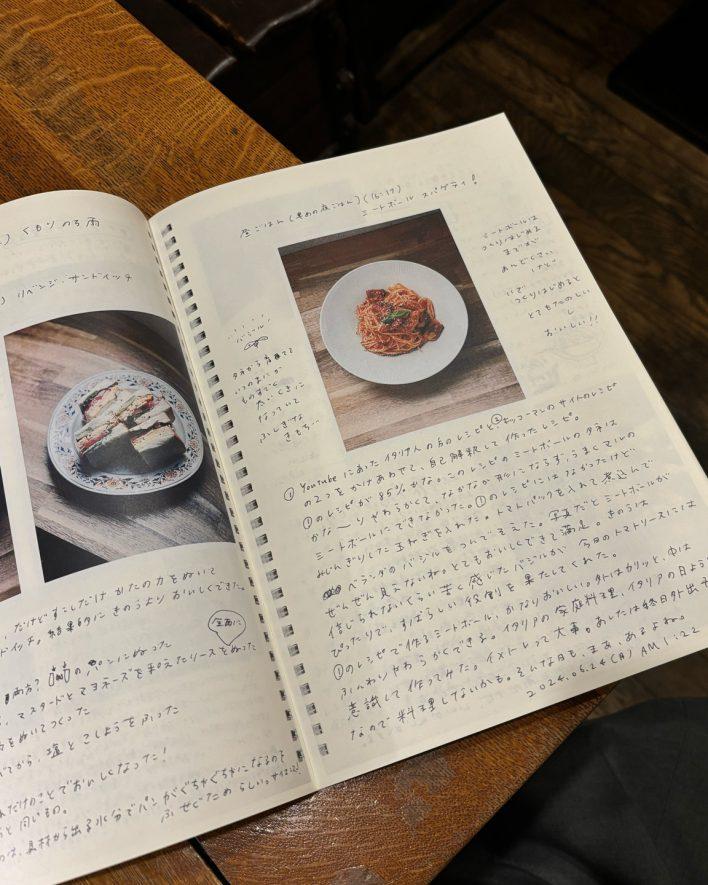 くもりのち雨
リベンジ・サンドイッチ
だけどすこしだけ かたの力をぬいて
結果的に きのうより おいしくできた。
全面に
両方?のパンにぬった
マスタードとマヨネーズを和えたソースをぬった
をぬいてつくった
てから、塩とこしょうをふった
だけのことでおいしくなった!
と同じもの。
は、具材から出る水分でパンがぐちゃぐちゃになるのを
ふせぐため らしい。
昼ごはん(早めの夜ごはん)(16:17)
ミートボール スパゲティ!
ミートボールは
つくりはじめる
までが
めんどくさい
けど
つくりはじめると
とてもたのしい
し
おいしい!!
バジル
タネから育てて
いつのまにか
ものすごく
大きくに
なっていて
ふしぎな
きもち…
①Youtubeにあったイタリア人の方のレシピと、②キッコーマンのサイトのレシピ
の2つをかけあわせて、自己解釈して作ったレシピ。
①のレシピが85%かな。このレシピのミートボールのタネは
かな〜りやわらかくて、なかなか形にならず、うまくマルの
ミートボールにできなかった。①のレシピにはなかったけど
みじんぎりした玉ねぎを入れた。トマトパックを入れて煮込んで
ベランダのバジルをつんでそえた。写真だとミートボールが
ぜんぜん見えないね。とてもおいしくできて満足。きのうは
信じられないくらい苦く感じたバジルが 今日のトマトソースには
ぴったりで、すばらしい役割を果たしてくれた。
①のレシピで作るミートボール、かなりおいしい。外はカリッと、中は
ふんわりやわらかくできる。イタリアの家庭料理、イタリアの日よう
意識して作ってみた。イメトレって大事。あしたは終日外出
なので料理しないかも。そんな日も、まあ、あるよね。
2024.06.24(月) AM 1:22